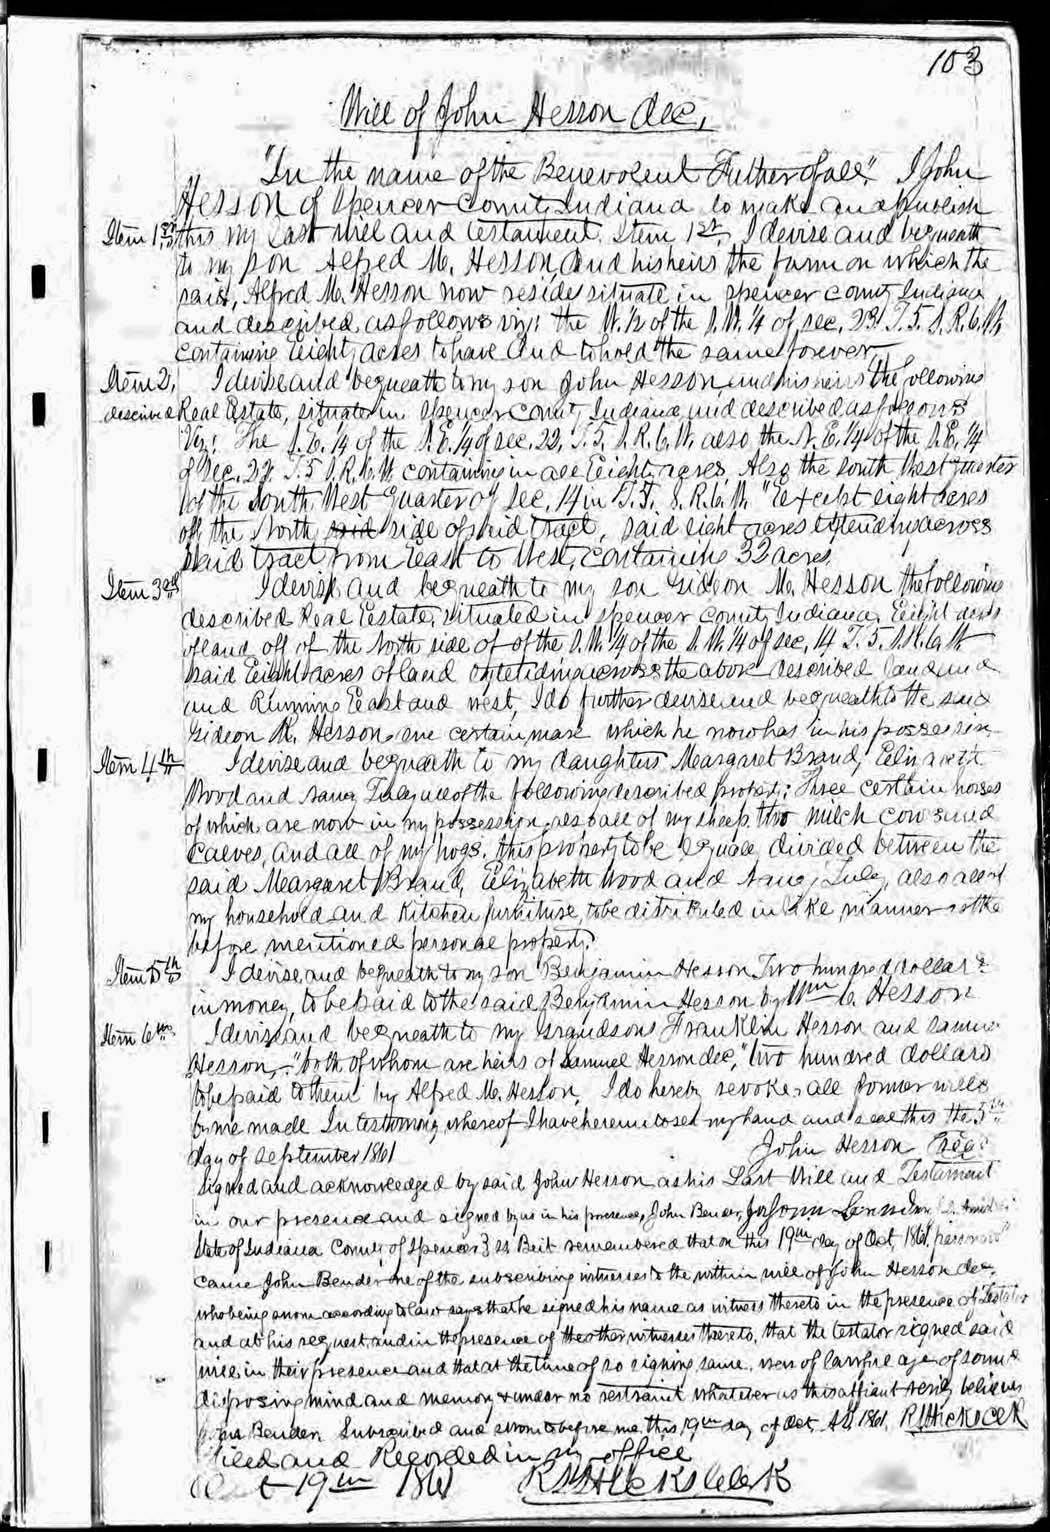 103
Will of John Hesson dec,
"In the name of the Benevolent Father of all." I John
Hesson of Spencer County Indiana do make and publish
Item 1st this my last will and testament. Item 1st, I devise and bequeath
to my son Alfred M. Hesson, and his heirs the farm on which the
said, Alfred M. Hesson now reside situate in Spencer County Indiana
and described as follows viz: the W. 1/2 of the S.W. 1/4 of sec. 23. T. 5. S. R. 6. W.
containing Eeighty acres to have and to hold the same forever,
Item 2, I devise and bequeath to my son John Hesson, and his heirs the following
described Real Estate, situate in Spencer County Indiana and described as follows
Viz: The S. E. 1/4 of the S. E. 1/4 of sec. 22, T. 5. S. R. 6. W. also the N. E. 1/4 of the S. E. 1/4
of Sec. 22. T. 5 S. R. 6. W. containing in all Eeighty acres, Also the south West quarter
of the South West Quarter of Sec, 14 in T. 5. S. R. 6. W. "Except eight acres
off the North said side of said tract, said eight acres extending across
said tract from Eeast to West, containing 32 acres,
Item 3rd I devise and bequeath to my son Gideon M. Hesson the following
described Real Eestate, situated in Spencer County Indiana, Eeight acres
of land off of the North side of of the S. W. 1/4 of the S. W. 1/4 of sec. 14 T. 5 S. R. 6. W
said Eeight acres of land extending across the above described land and
and Running Eeast and west, I do further devise and bequeath to the said
Gideon R. Hesson one certain mare which he now has in his possession
Item 4th I devise and bequeath to my daughters Margaret Brand, Elizabeth
Wood and Nancy all of the following described property: Three certain horses
of which are now in my possession, also all of my sheep. two milch cows and
calves, and all of my hogs. this property to be equally divided between the
said Margaret Brand, Elizabeth Wood and Nancy also all of
my household and Kitchen furniture, to be distributed in like manner as the
before mentioned personal property.
Item 5th I devise and bequeath to my son Benjamin Hesson Two hundred dollars
in money, to be paid to the said Benjamin Hesson by Wm C. Hesson
Item 6th I devise and bequeath to my Grandsons Franklin Hesson and Samuel
Hesson, - "both of whom are heirs of Samuel Hesson dec," two hundred dollars
to be paid to them by Alfred M. Hesson, I do hereby revoke all former wills
by me made In testimony whereof I have hereunto set my hand and seal this the 5th
day of September 1861 John Hesson seal
Signed and acknowledged by said John Hesson as his Last Will and Testament
in our presence and signed by us in his presence, John Bender,
State of Indiana County of Spencer } ss Be it remembered that on this 19th day of Oct, 1861, personally
came John Bender one of the subscribing witnesses to the within will of John Hesson dec,
who being sworn according to law says that he signed his name as witness thereto in the presence of Testator
and at his request, and in the presence of the other witnesses thereto, that the testator signed said
will in their presence and that at the time of so signing same, was of lawful age of sound &
disposing mind and memory & under no restraint whatever as this affiant verily believes
John Bender Subscribed and sworn to before me this 19th day of Oct A.D. 1861,
Filed and Recorded in my office
Oct 19th 1861 Clerk